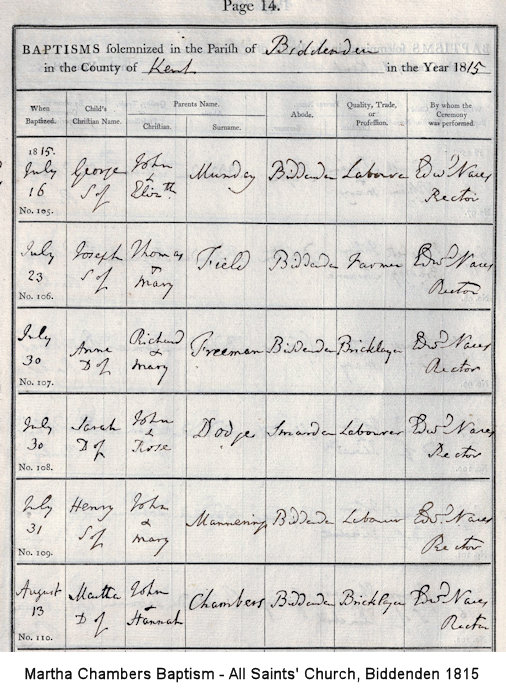 Page 14.
BAPTISMS solemnized in the Parish of Biddenden
in the County of Kent in the Year 1815
When Baptized. Child's Christian Name. Parents Name. Christian. Surname. Abode. Quality, Trade, or Profession. By whom the Ceremony was performed.
1815.
July 16 George S of John & Elizth. Munday Biddenden Labourer Edwd Nares Rector
No. 105.
July 23 Joseph S of Thomas + Mary Field Biddenden Farmer Edwd Nares Rector
No. 106.
July 30 Anne D of Richard & Mary Freeman Biddenden Bricklayer Edwd Nares Rector
No. 107.
July 30 Sarah D of John & Rose Dodge Smarden Labourer Edwd Nares Rector
No. 108.
July 31 Henry S of John & Mary Mannering Biddenden Labourer Edwd Nares Rector
No. 109.
August 13 Martha D of John + Hannah Chambers Biddenden Bricklayer Edwd Nares Rector
No. 110.
Martha Chambers Baptism - All Saints' Church, Biddenden 1815